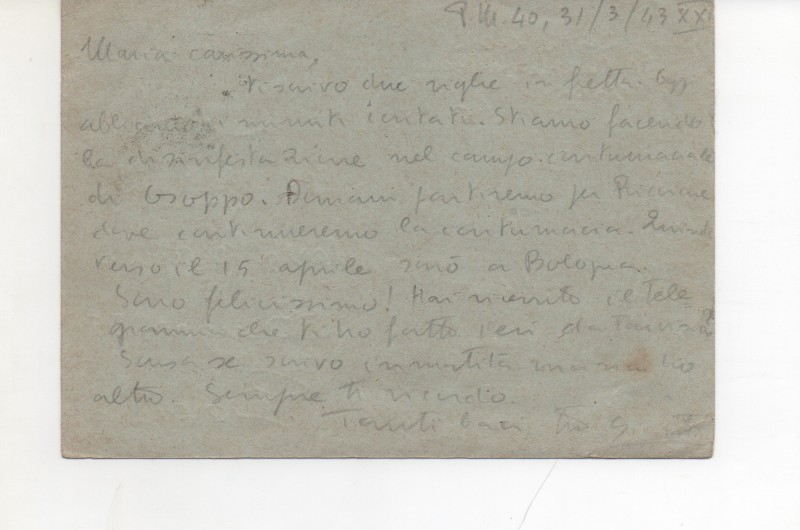 P.M. 40, 31/3/43 XXI
Maria carissima,
ti scrivo due righe in fretta. Oggi
abbiamo i minuti contati. Stiamo facendo
la disinfestazione nel campo contumaciale
di Osoppo. Domani partiremo per Riccione
dove continueremo la contumacia. Quindi
verso il 15 aprile sarò a Bologna.
Sono felicissimo! Hai ricevuto il tele
gramma che ti ho fatto ieri da Tarvisio?
Scusa se scrivo in matita ma non ho
altro. Sempre ti ricordo.
Tanti baci tuo G.